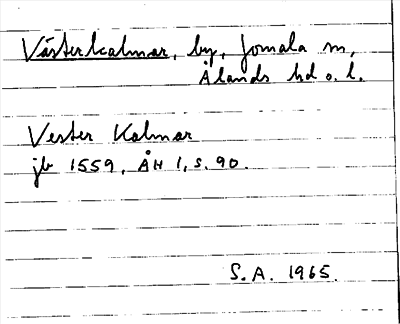 Västerkalmar, by, Jomala sn,
Ålands hd o. l.
Vester Kalmar
jb 1559, ÅH 1, s. 90.
S.A. 1965.